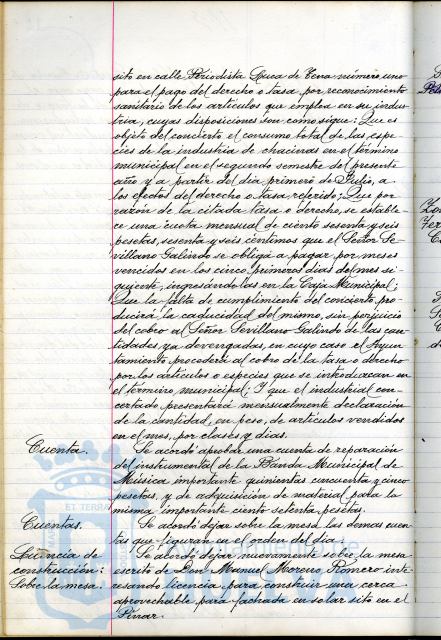 sito en calle Periodista Luca de Tena número uno
para el pago del derecho o tasa, por reconocimiento
sanitario de los artículos que emplea en su indus-
tria, cuyas disposiciones son como sigue: Que es
objeto del concierto el consumo total de las espe-
cies de la industria de chacinas en el término
municipal en el segundo semestre del presente
año y a partir del día primero de Julio, a
los efectos del derecho o tasa referido; Que por
razón de la citada tasa o derecho, se estable-
ce una cuota mensual de ciento sesenta y seis
pesetas, sesenta y seis céntimos que el Señor Se-
villano Galindo se obliga a pagar por meses
vencidos en los cinco primeros días del mes si-
guiente, ingresándolas en la Caja Municipal;
Que la falta de cumplimiento del concierto, pro-
ducirá la caducidad del mismo, sin perjuicio
del cobro al Señor Sevillano Galindo de las can-
tidades, ya devengadas, en cuyo caso el Ayun-
tamiento procederá al cobro de la tasa o derecho
por los artículos o especies que se introduzcan en
el término municipal; Y que el industrial con-
certado, presentará mensualmente declaración
de la cantidad, en peso, de artículos vendidos
en el mes, por clases y días.
Cuenta. Se acordó aprobar una cuenta de reparación
del instrumental de la Banda Municipal de
Música importante quinientas cincuenta y cinco
pesetas, y de adquisición de material para la
misma importante ciento setenta pesetas.
Cuentas. Se acordó dejar sobre la mesa las demas cuen-
tas que figuran en el orden del día.
Licencia de Se acordó dejar nuevamente sobre la mesa
construcción: escrito de Don Manuel Moreno Romero inte-
Sobre la mesa. resando licencia para construir una cerca
aprovechable para fachada en solar sito en el
Pinar.
ET TERRA